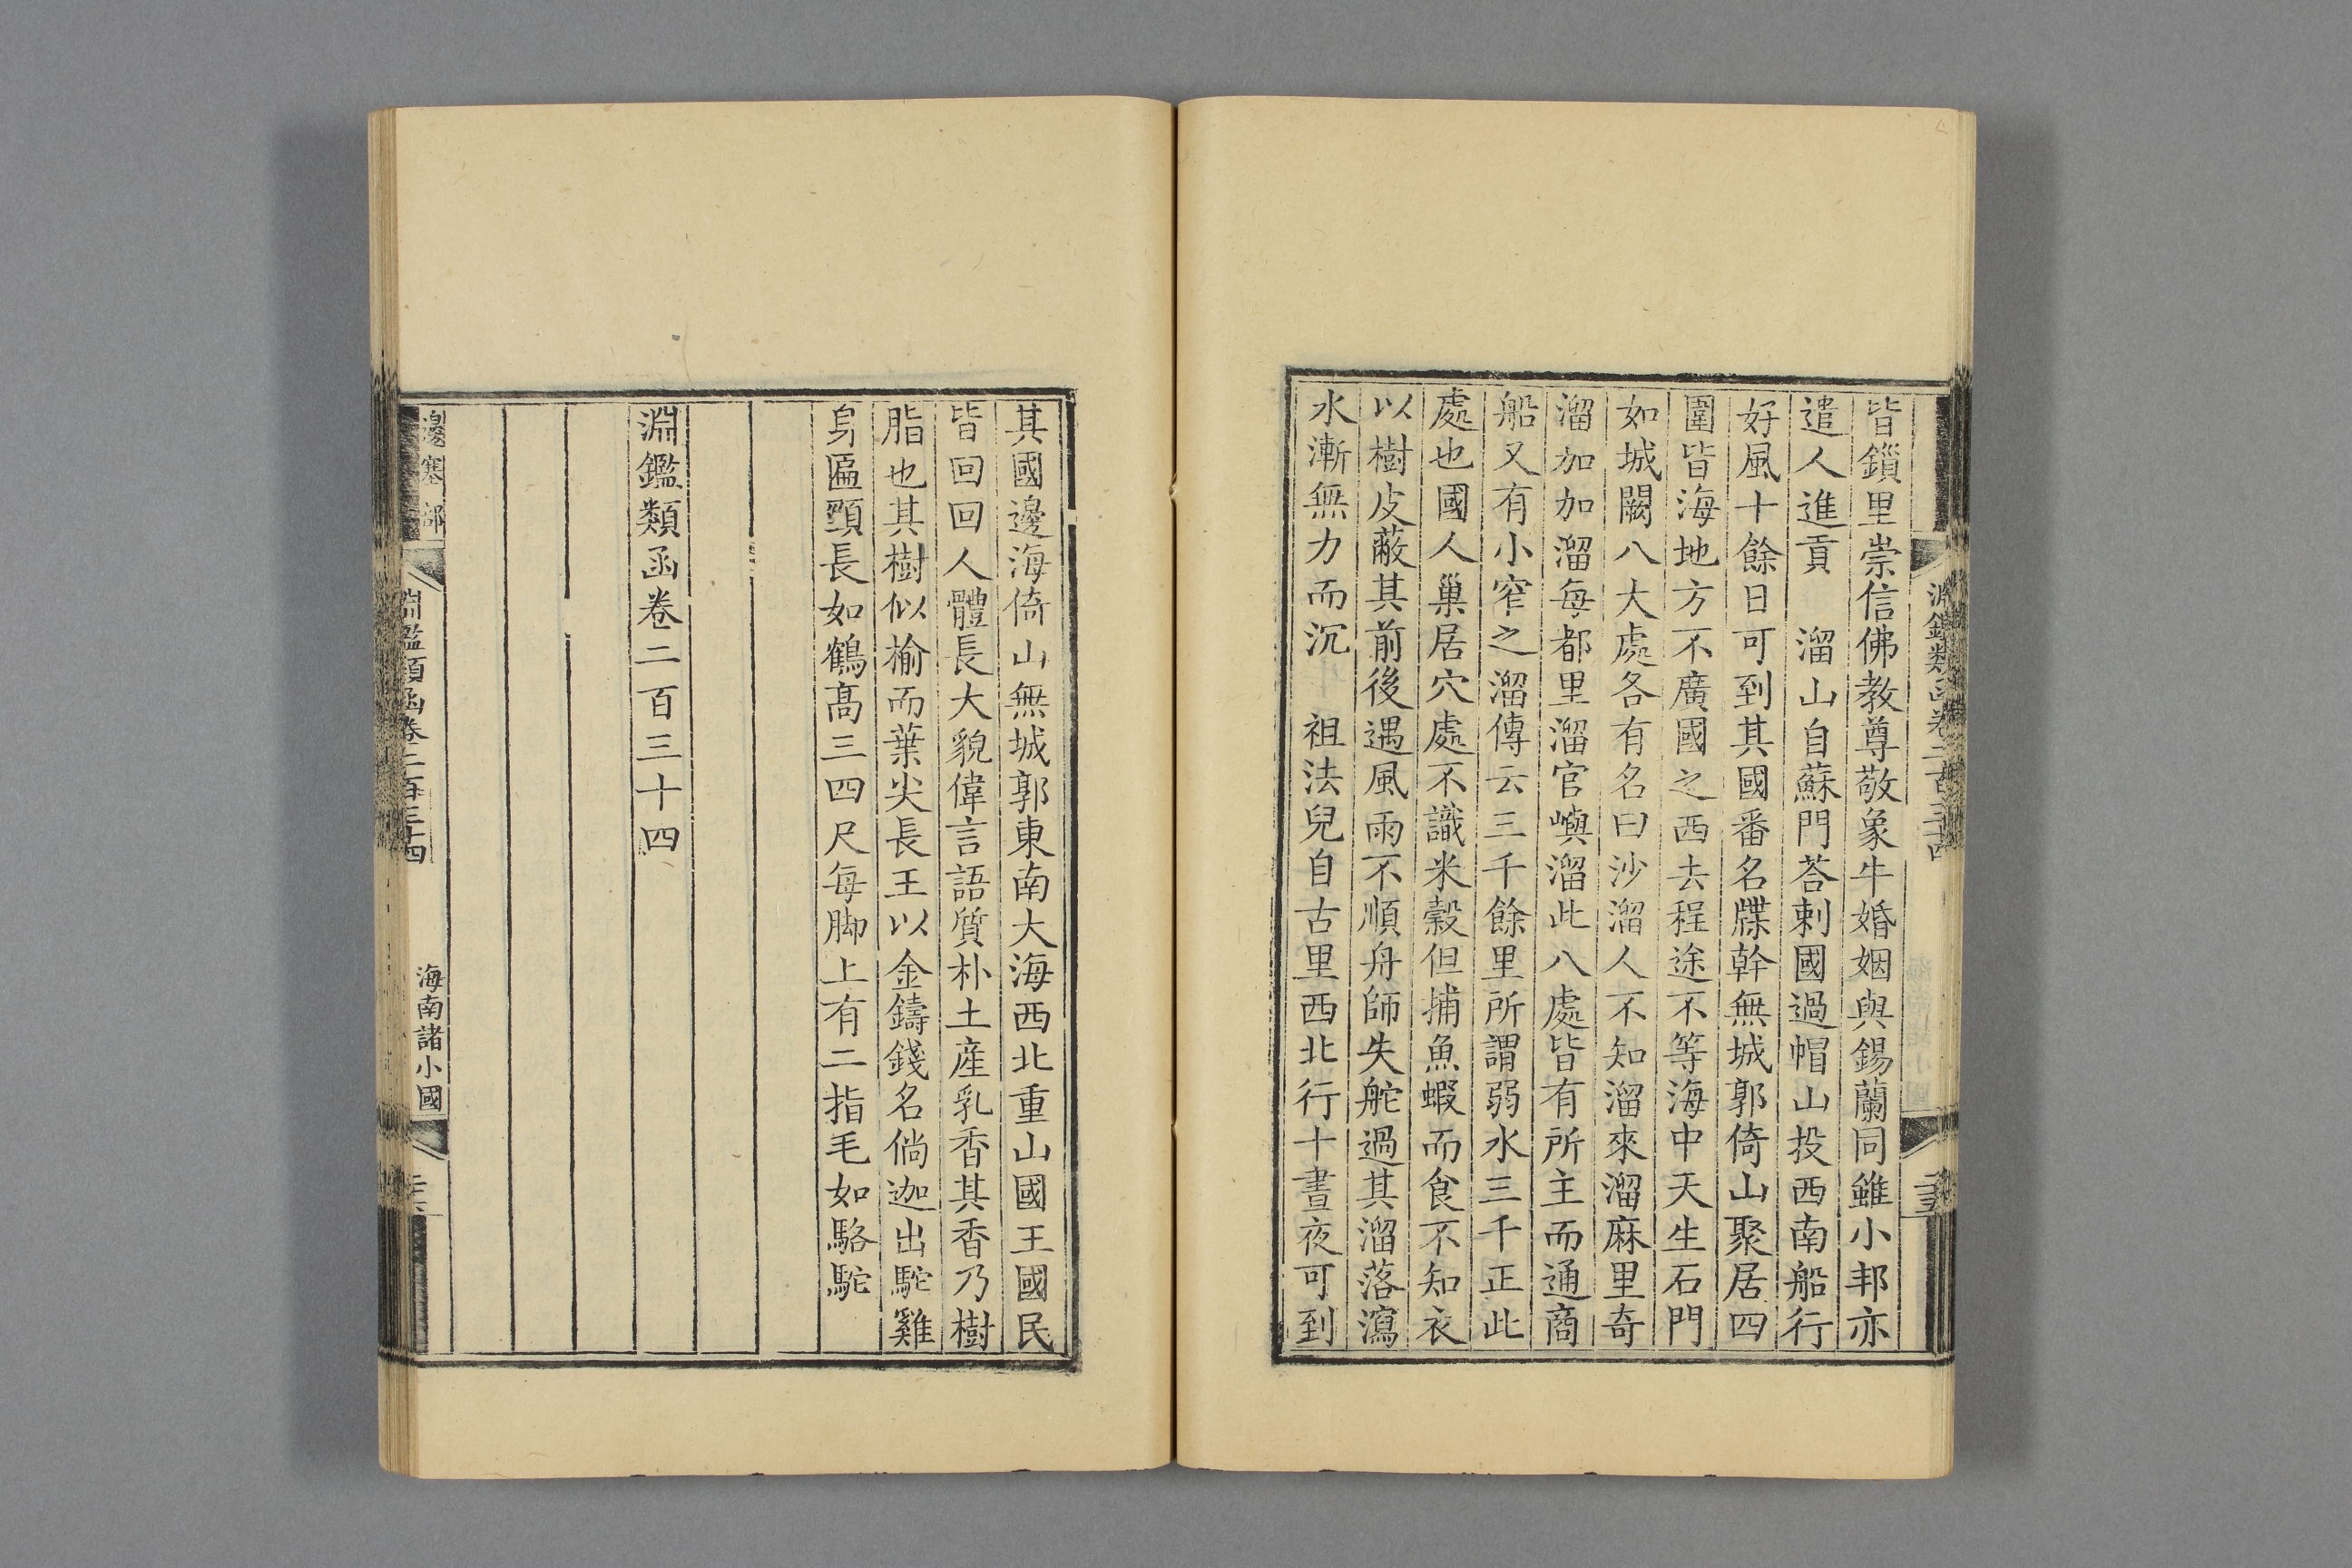 皆鎖里崇信佛教尊敬象牛婚姻與錫蘭同雖小邦亦
遣人進貢　溜山自蘇門荅剌國過帽山投西南船行
好風十餘日可到其國番名牒幹無城郭倚山聚居四
圍皆海地方不廣國之西去程途不等海中天生石門
如城闕八大處各有名曰沙溜人不知溜來溜麻里奇
溜加加溜每都里溜官嶼溜此八處皆有所主而通商
船又有小窄之溜傳云三千餘里所謂弱水三千正此
處也國人巢居穴處不識米穀但捕魚蝦而食不知衣
以樹皮蔽其前後遇風雨不順舟師失舵過其溜落瀉
水漸無力而沉　祖法兒自古里西北行十晝夜可到
其國邊海倚山無城郭東南大海西北重山國王國民
皆回回人體長大貌偉言語質朴土産乳香其香乃樹
脂也其樹似榆而葉尖長王以金鑄錢名倘迦出駝雞
身匾頸長如鶴髙三四尺每脚上有二指毛如駱駝
淵鑑類函卷二百三十四
邊塞部
淵鑑類函卷二百三十四
海南諸小國